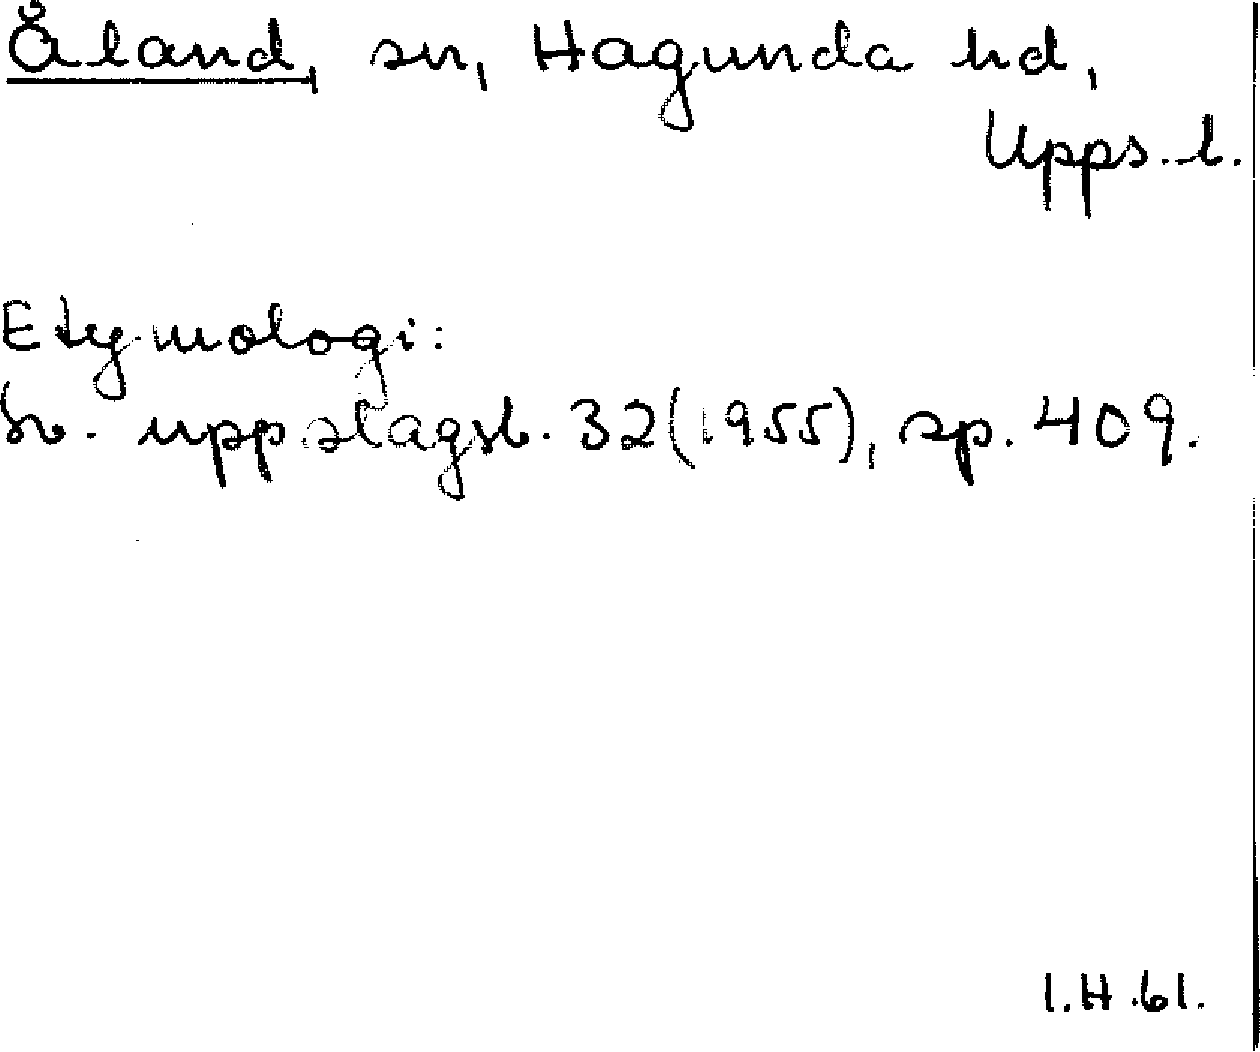 Åland, sn, Hagunda hd,
Upps. l.
Etymologi:
Sv. uppslagsb. 32 (1955), sp. 409.
I.H. 61.